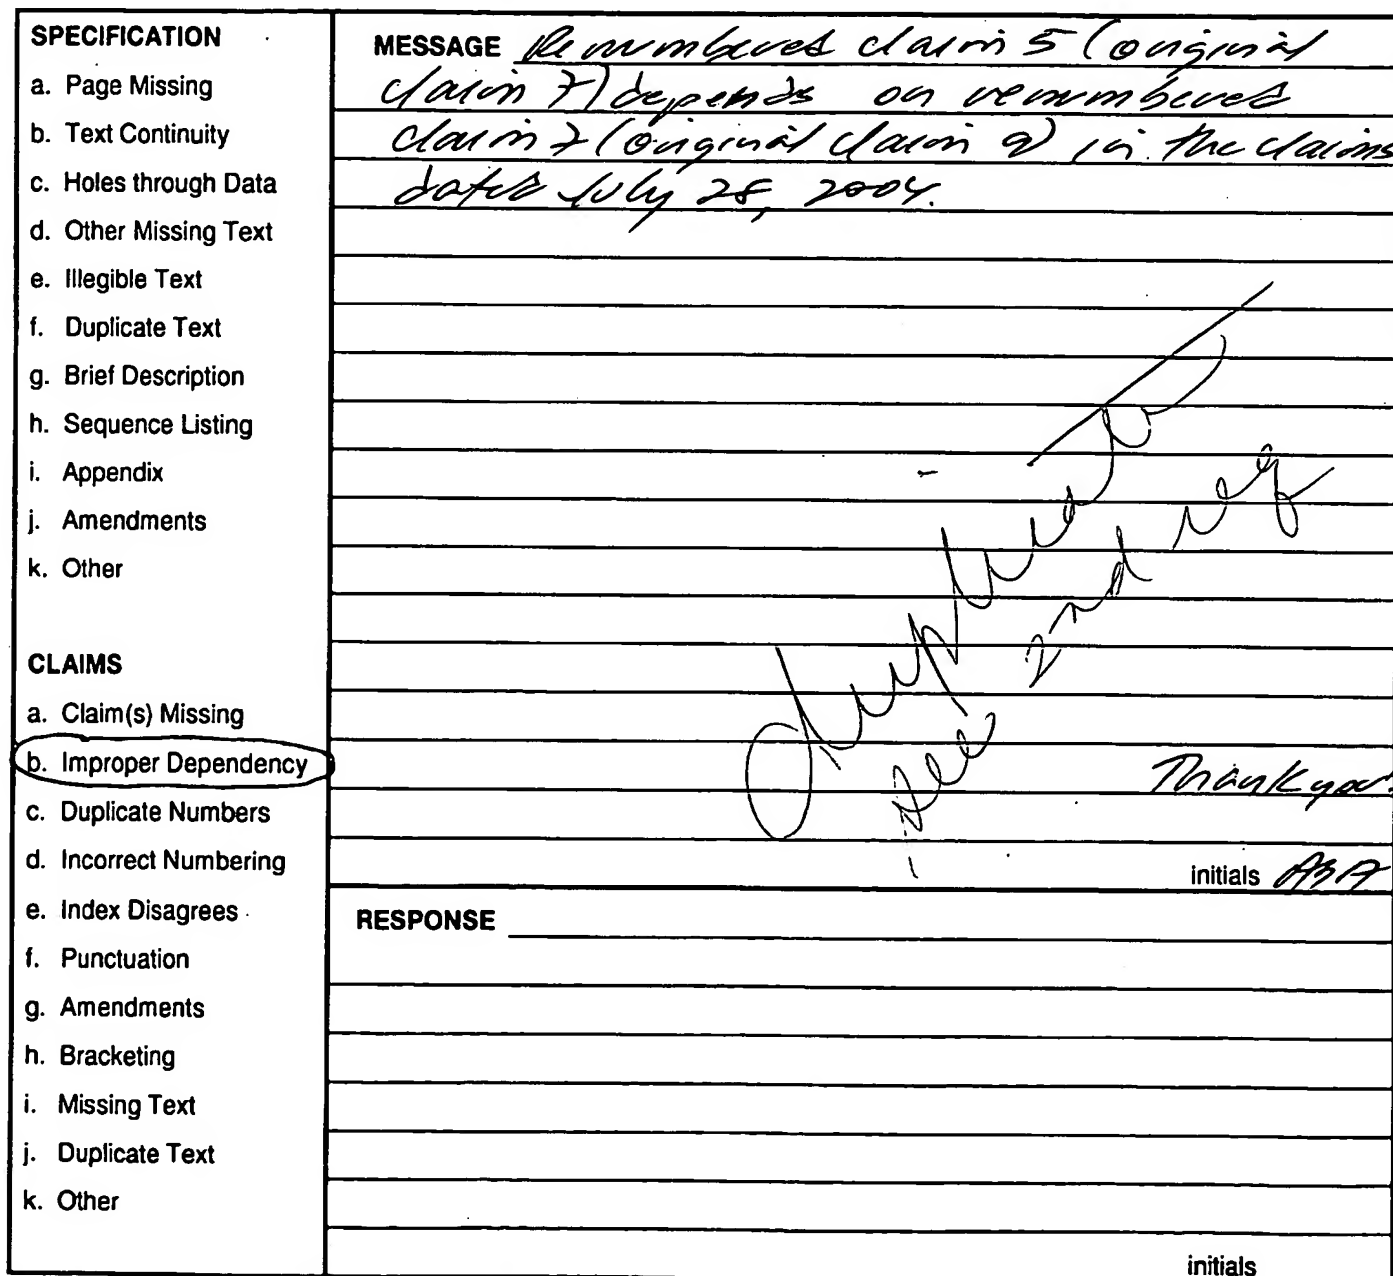 SPECIFICATION
a. Page Missing
b. Text Continuity
c. Holes through Data
d. Other Missing Text
e. Illegible Text
f. Duplicate Text
g. Brief Description
h. Sequence Listing
i. Appendix
j. Amendments
k. Other
CLAIMS
a. Claim(s) Missing
b. Improper Dependency
c. Duplicate Numbers
d. Incorrect Numbering
e. Index Disagrees
f. Punctuation
g. Amendments
h. Bracketing
i. Missing Text
j. Duplicate Text
k. Other
MESSAGE Renumbered claim 5 (original
claim 7) depends on renumbered
claim 7 (original claim 9) in the claims
dated July 28, 2004.
duplicate
see 2nd req
Thank you.
initials
RESPONSE
initials